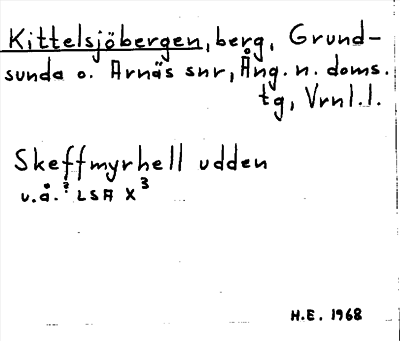 Kittelsjöbergen, berg, Grund-
sunda o. Arnäs snr, Ång. n. doms.
tg, Vrnl.l.
Skeffmyrhell udden
u.å.? LSA X³
H.E. 1968